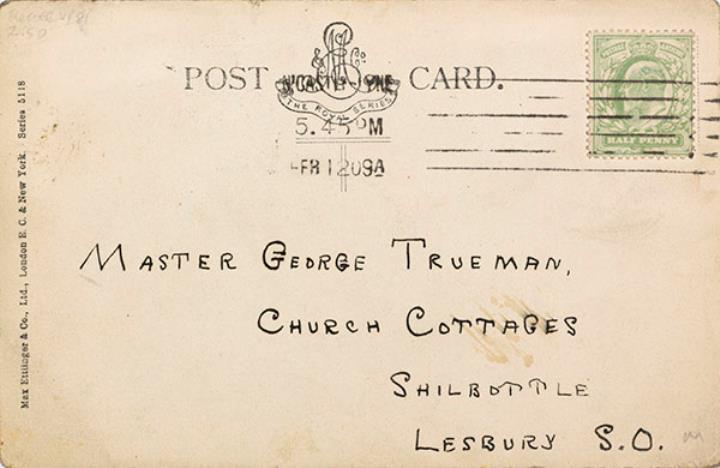 POST CARD.
& Co
THE ROYAL SERIES
N'CASTLE-ON-TYNE
5.45 PM
FR 12 09A
HALF PENNY
Max Ettlinger & Co., Ltd., London E. C. & New York. Series 5118
MASTER GEORGE TRUEMAN,
CHURCH COTTAGES
SHILBOTTLE
LESBURY S.O.